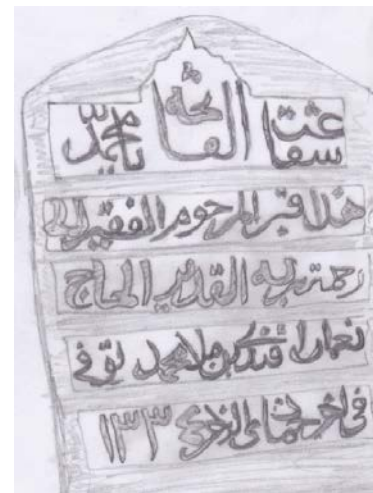 شفاعت الفاتحة يا محمد
هذا قبر المرحوم الفقير الى
رحمت ربه القدير الحاج
نعمان افندي بن ملا محمد توفي
في اخر جمادى الاخرى ١٣٣